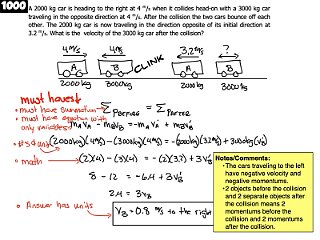 1000
A 2000 kg car is heading to the right at 4 m/s when it collides head-on with a 3000 kg car
traveling in the opposite direction at 4 m/s. After the collision the two cars bounce off each
other. The 2000 kg car is now traveling in the direction opposite of its initial direction at
3.2 m/s. What is the velocity of the 3000 kg car after the collision?
4 m/s 4 m/s 3.2 m/s ?
A B CLINK A B
2000kg 3000kg 2000kg 3000kg
must haves!
• must have summation Σ Pbefore = Σ Pafter
• must have equation with
only variables! mAvA - mBvB = -mAvA' + mBvB'
• #'s & units (2000kg)(4m/s) - (3000kg)(4m/s) = -(2000kg)(3.2m/s) + 3000kg(vB')
• math (2)(4) - (3)(4) = -(2)(3.2) + 3vB'
8 - 12 = -6.4 + 3vB'
2.4 = 3vB
• Answer has units vB = 0.8 m/s to the right
Notes/Comments:
•The cars traveling to the left
have negative velocity and
negative momentums.
•2 objects before the collision
and 2 separate objects after
the collision means 2
momentums before the
collision and 2 momentums
after the collision.